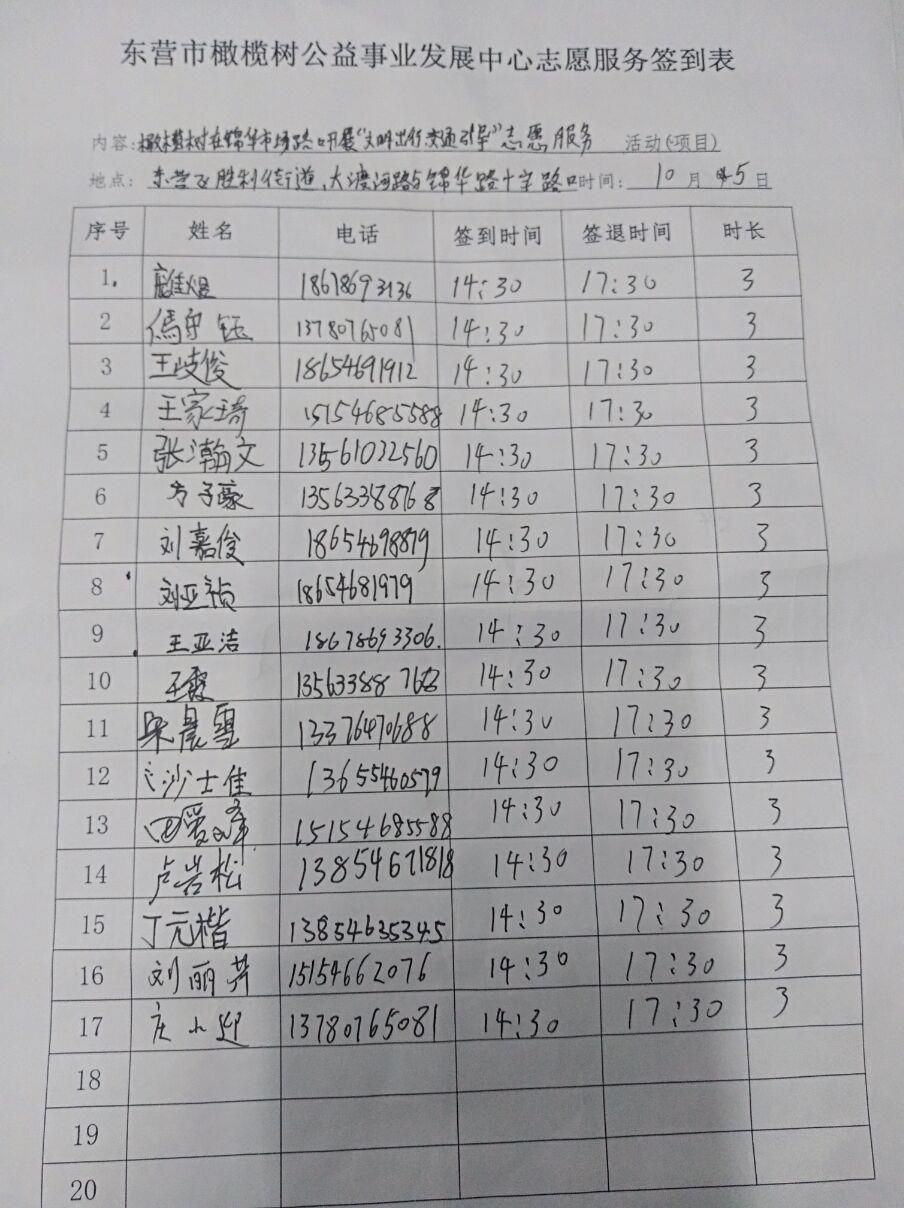 东营市橄榄树公益事业发展中心志愿服务签到表
内容:橄榄树在锦华市场路口开展“文明出行交通引导”志愿服务 活动(项目)
地点: 东营区胜利街道,大渡河路与锦华路十字路口时间: 10月5日
序号 姓名 电话 签到时间 签退时间 时长
1. 18678693136 14:30 17:30 3
2 13780765081 14:30 17:30 3
3 王歧俊 18654691912 14:30 17:30 3
4 王家琦 15154685588 14:30 17:30 3
5 张瀚文 13561022560 14:30 17:30 3
6 方子豪 13563388768 14:30 17:30 3
7 刘嘉俊 18654698879 14:30 17:30 3
8 刘亚祯 18654681979 14:30 17:30 3
9 王亚洁 18678693306. 14:30 17:30 3
10 王霞 13563388768 14:30 17:30 3
11 梁晨雪 13376470688 14:30 17:30 3
12 沙士佳 13655460579 14:30 17:30 3
13 田爱峰 15154685588 14:30 17:30 3
14 卢岩松 13854671818 14:30 17:30 3
15 丁元楷 13854635345 14:30 17:30 3
16 刘丽萍 15154662076 14:30 17:30 3
17 庄小迎 13780765081 14:30 17:30 3
18
19
20